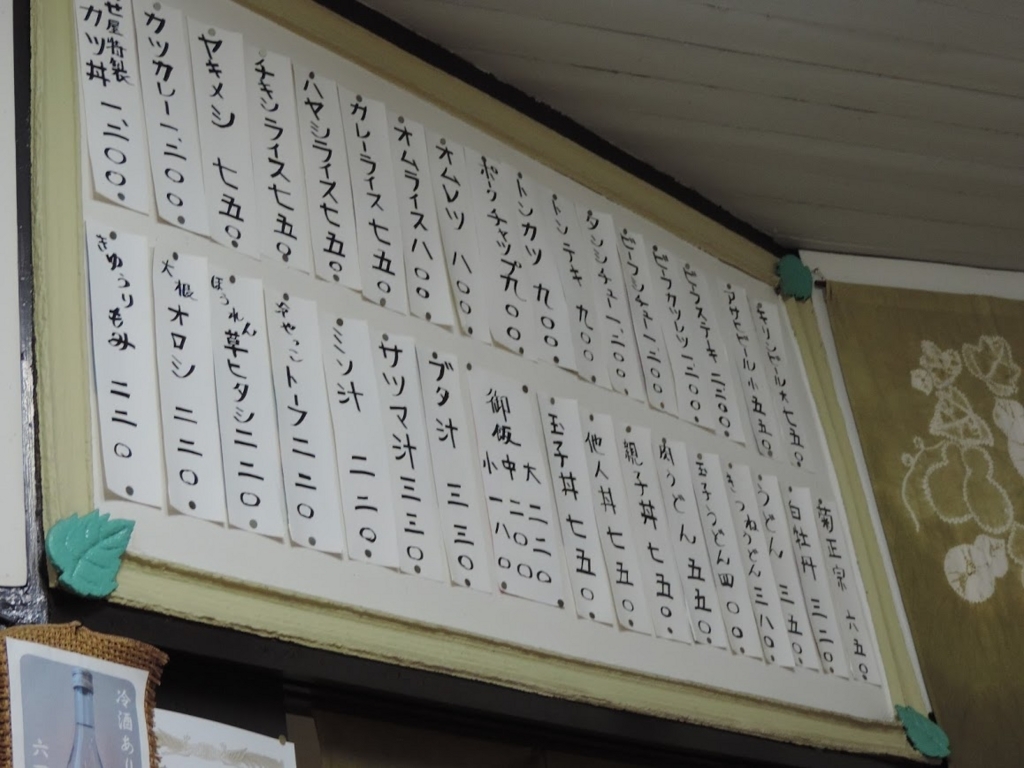 キリンビール大 七五〇
アサヒビール小 五五〇
ビフステーキ 二、二〇〇
ビーフカツレツ 一、二〇〇
ビーフシチュー 一、二〇〇
タンシチュー 一、二〇〇
トンテキ 九〇〇
トンカツ 九〇〇
ポークチャップ 九〇〇
オムレツ 八〇〇
オムライス 八〇〇
カレーライス 七五〇
ハヤシライス 七五〇
チキンライス 七五〇
ヤキメシ 七五〇
カツカレー 一、二〇〇
屋特製
カツ丼 一、二〇〇
菊正宗 六五〇
白牡丹 三二〇
うどん 三五〇
きつねうどん 三八〇
玉子うどん 四〇〇
肉うどん 五五〇
親子丼 七五〇
他人丼 七五〇
玉子丼 七五〇
御飯
大 二二〇
中 二〇〇
小 一八〇
ブタ汁 三三〇
サツマ汁 三三〇
ミソ汁 二二〇
冷やっこトーフ 二二〇
ほうれん草ヒタシ 二二〇
大根オロシ 二二〇
きゅうりもみ 二二〇
冷酒あり
六